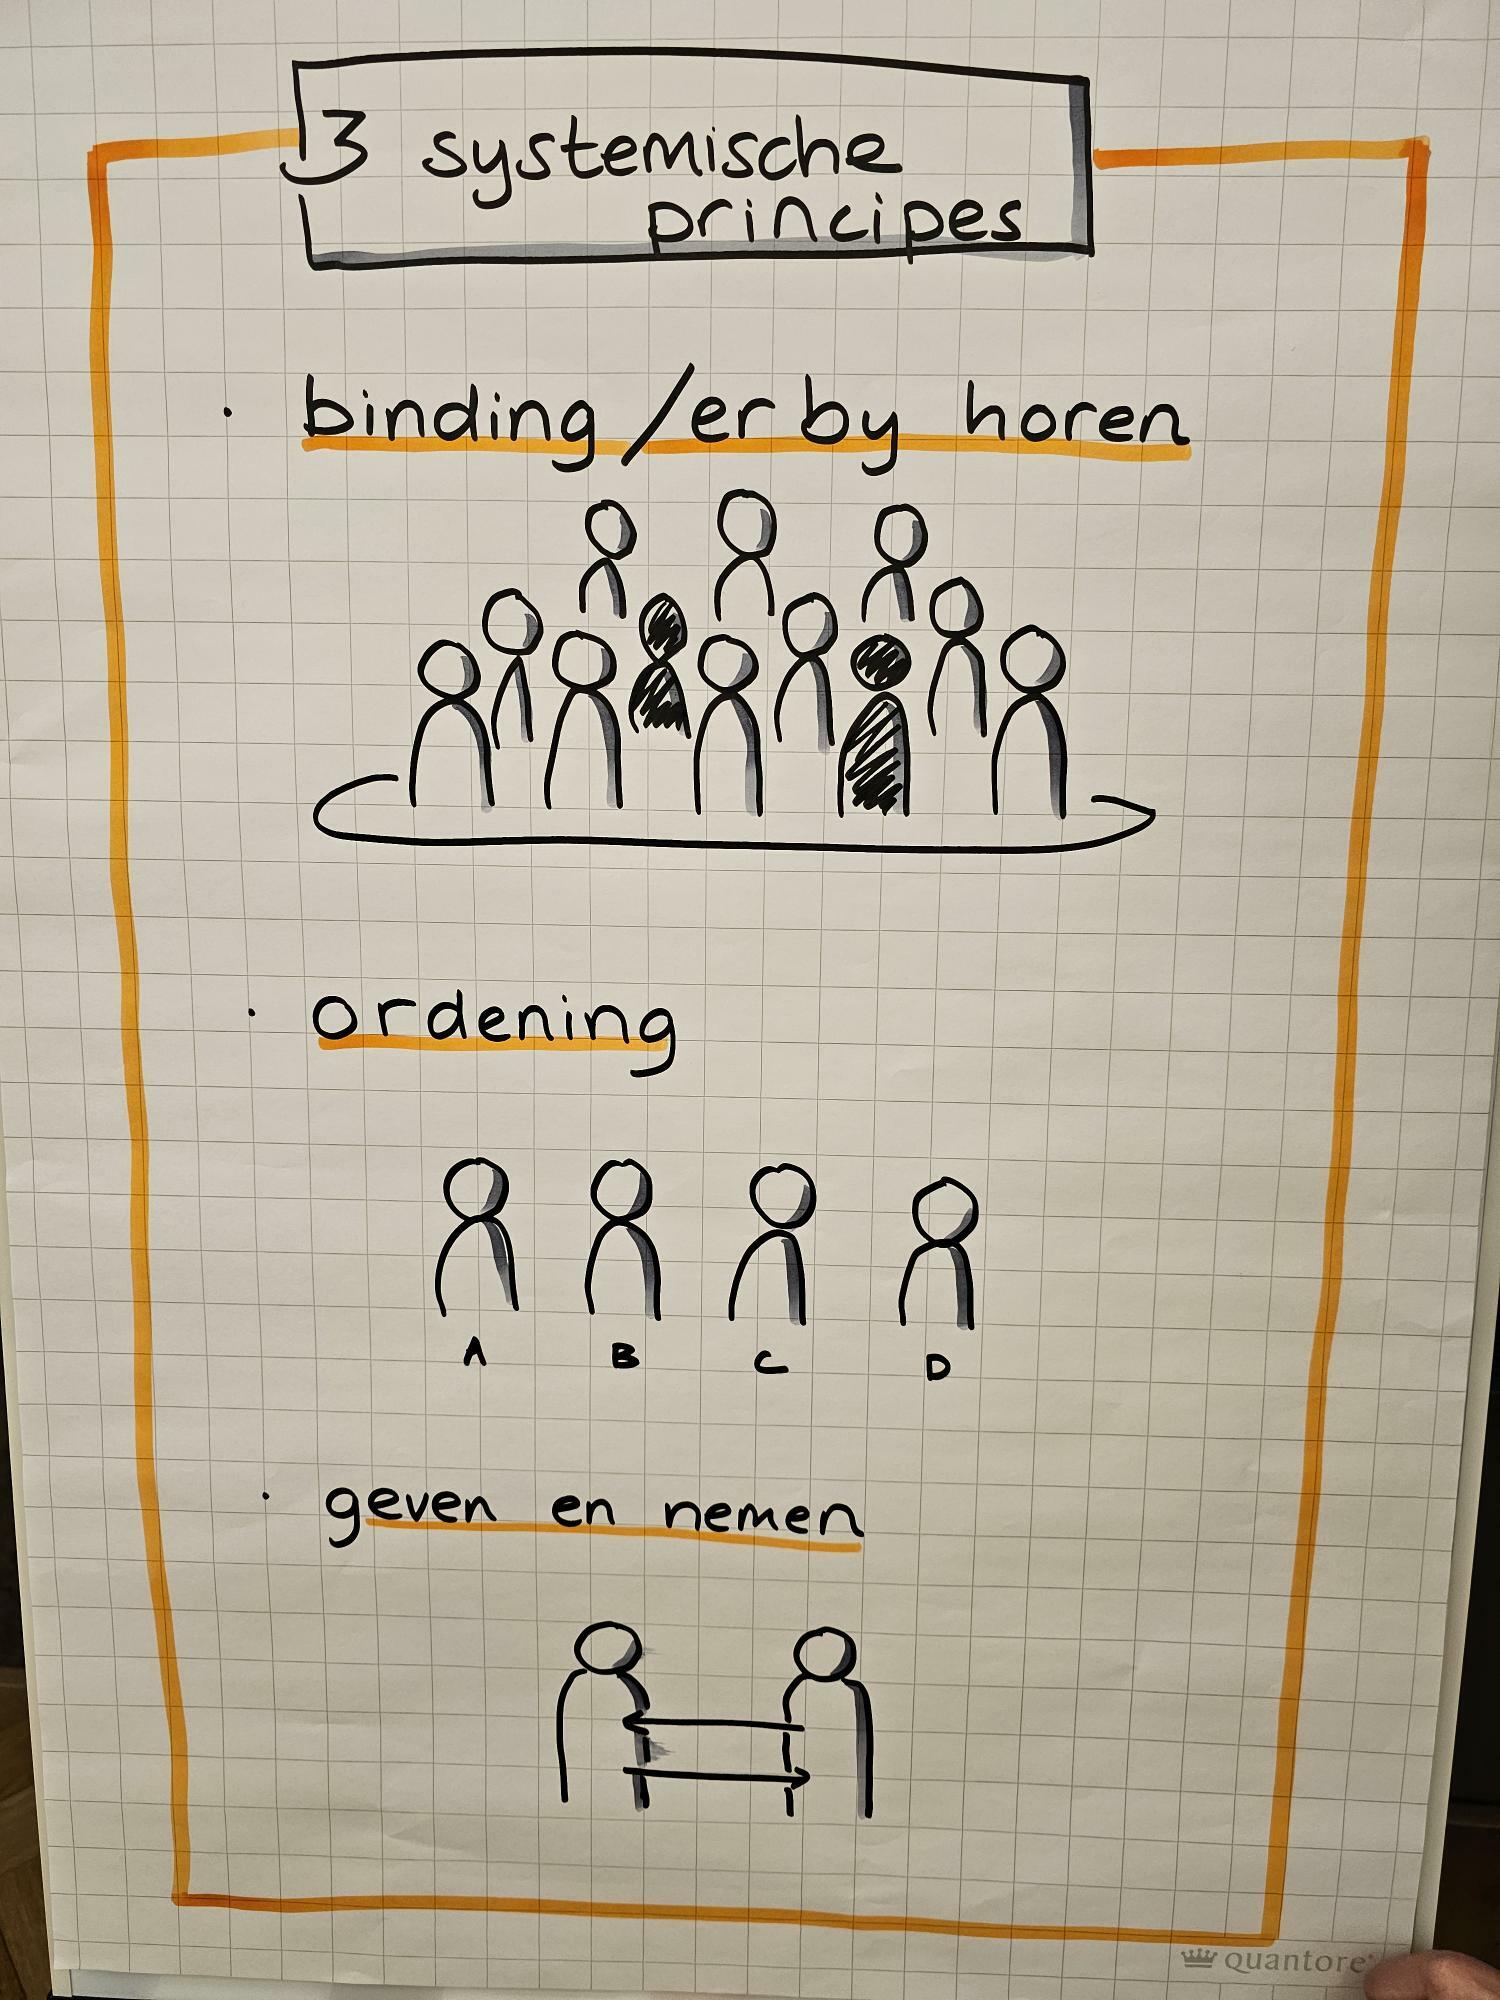 3 systemische
principes
· binding/er by horen
· ordening
A B C D
· geven en nemen
quantore